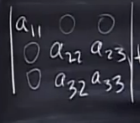 a₁₁ 0 0
0 a₂₂ a₂₃
0 a₃₂ a₃₃